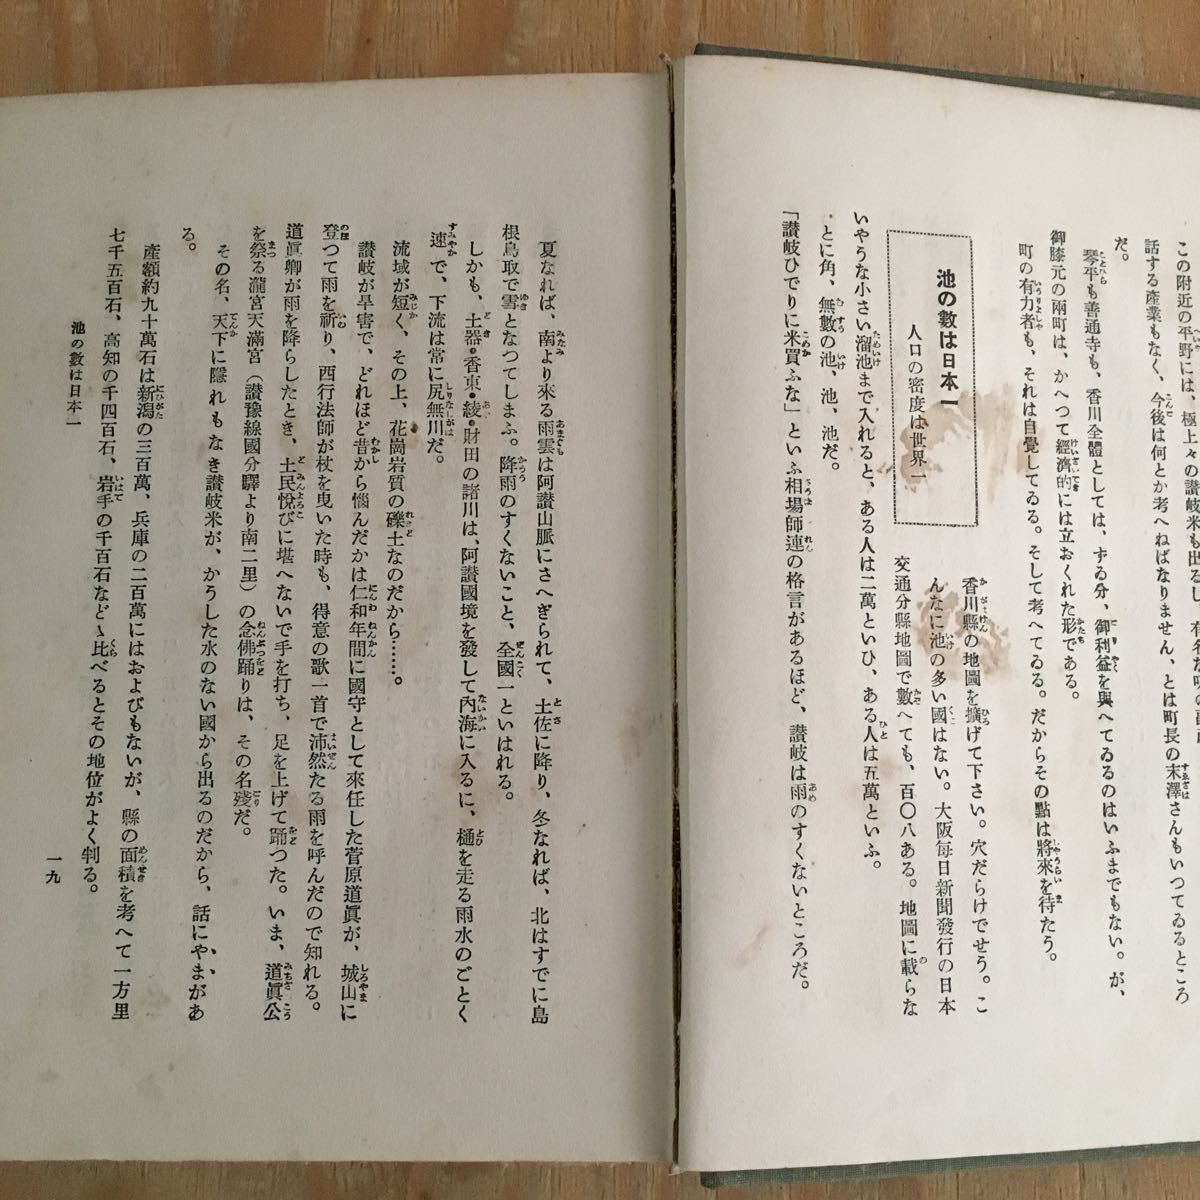 この附近の平野には、極上々の讃岐米も出るし、有名な
話する産業もなく、今後は何とか考へねばなりません、とは町長の末澤さんもいつてゐるところ
だ。
琴平も善通寺も、香川全體としては、ずゐ分、御利益を與へてゐるのはいふまでもない。が、
御膝元の兩町は、かへつて經濟的には立おくれた形である。
町の有力者も、それは自覺してゐる。そして考へてゐる。だからその點は將來を待たう。
池の數は日本一
人口の密度は世界一
香川縣の地圖を擴げて下さい。穴だらけでせう。こ
んなに池の多い國はない。大阪毎日新聞發行の日本
交通分縣地圖で數へても、百〇八ある。地圖に載らな
いやうな小さい溜池まで入れると、ある人は二萬といひ、ある人は五萬といふ。
とに角、無數の池、池、池だ。
「讃岐ひでりに米買ふな」といふ相場師連の格言があるほど、讃岐は雨のすくないところだ。
夏なれば、南より來る雨雲は阿讃山脈にさへぎられて、土佐に降り、冬なれば、北はすでに島
根鳥取で雪となつてしまふ。降雨のすくないこと、全國一といはれる。
しかも、土器・香東・綾・財田の諸川は、阿讃國境を發して內海に入るに、樋を走る雨水のごとく
速で、下流は常に尻無川だ。
流域が短く、その上、花崗岩質の礫土なのだから……。
讃岐が旱害で、どれほど昔から惱んだかは仁和年間に國守として來任した菅原道眞が、城山に
登つて雨を祈り、西行法師が杖を曳いた時も、得意の歌一首で沛然たる雨を呼んだので知れる。
道眞卿が雨を降らしたとき、土民悅びに堪へないで手を打ち、足を上げて踊つた。いま、道眞公
を祭る瀧宮天滿宮（讃豫線國分驛より南二里）の念佛踊りは、その名殘だ。
その名、天下に隱れもなき讃岐米が、かうした水のない國から出るのだから、話にやまがあ
る。
產額約九十萬石は新潟の三百萬、兵庫の二百萬にはおよびもないが、縣の面積を考へて一方里
七千五百石、高知の千四百石、岩手の千百石などゝ比べるとその地位がよく判る。
池の數は日本一
一九